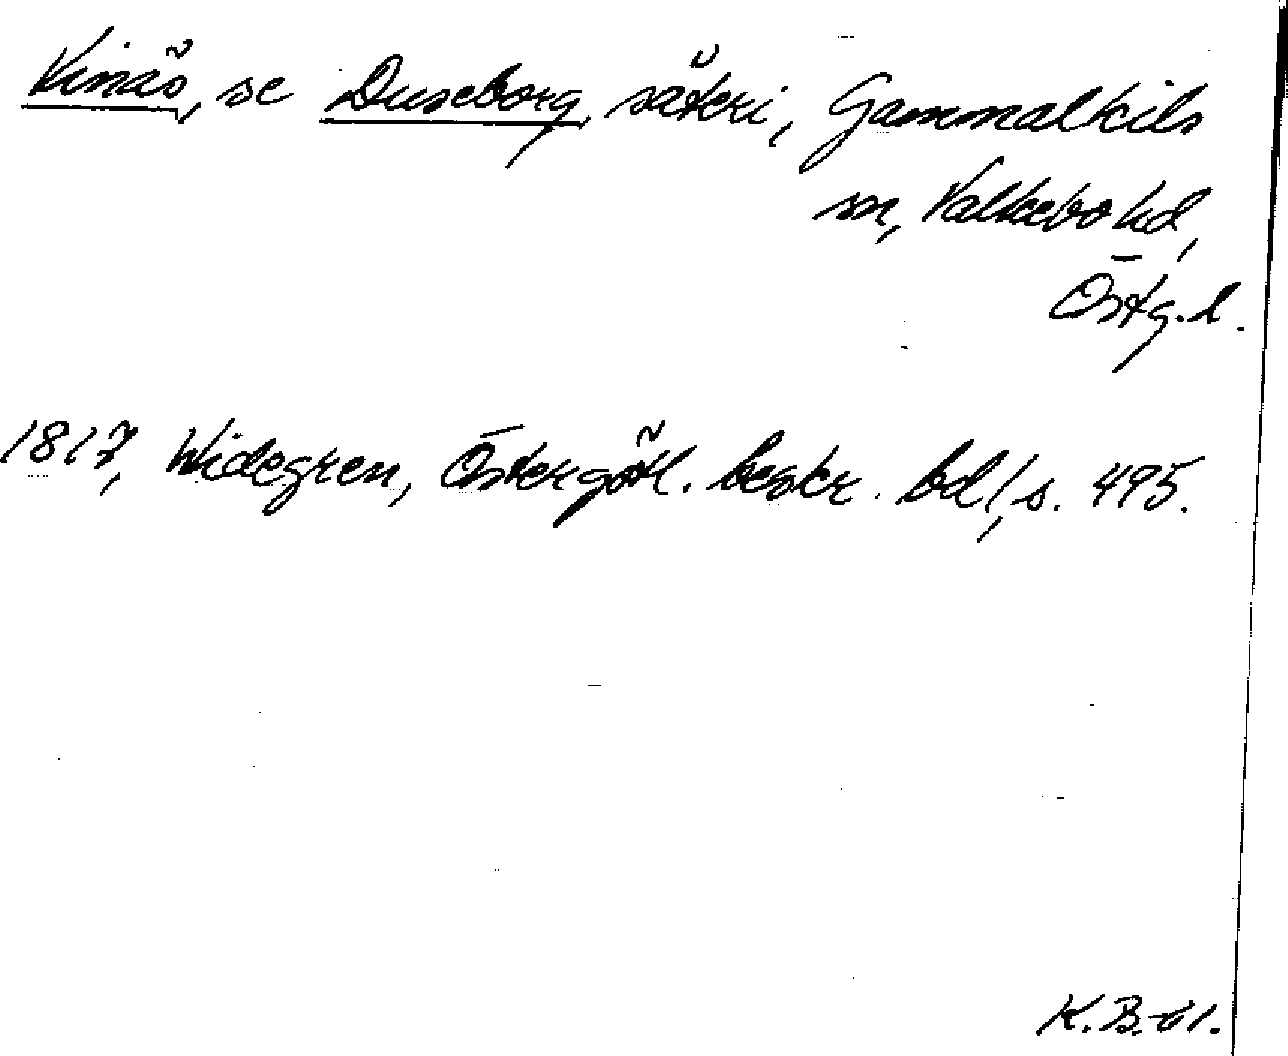 Kinäs, se Duseborg, säteri, Gammalkils
sn, Valkebo hd,
Östg. l.
1817, Widegren, Östergötl. beskr. bd 1, s. 495.
K.B.-61.